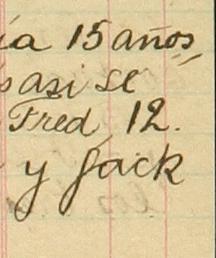 ia 15 años,
asi se
Fred, 12.
y Jack